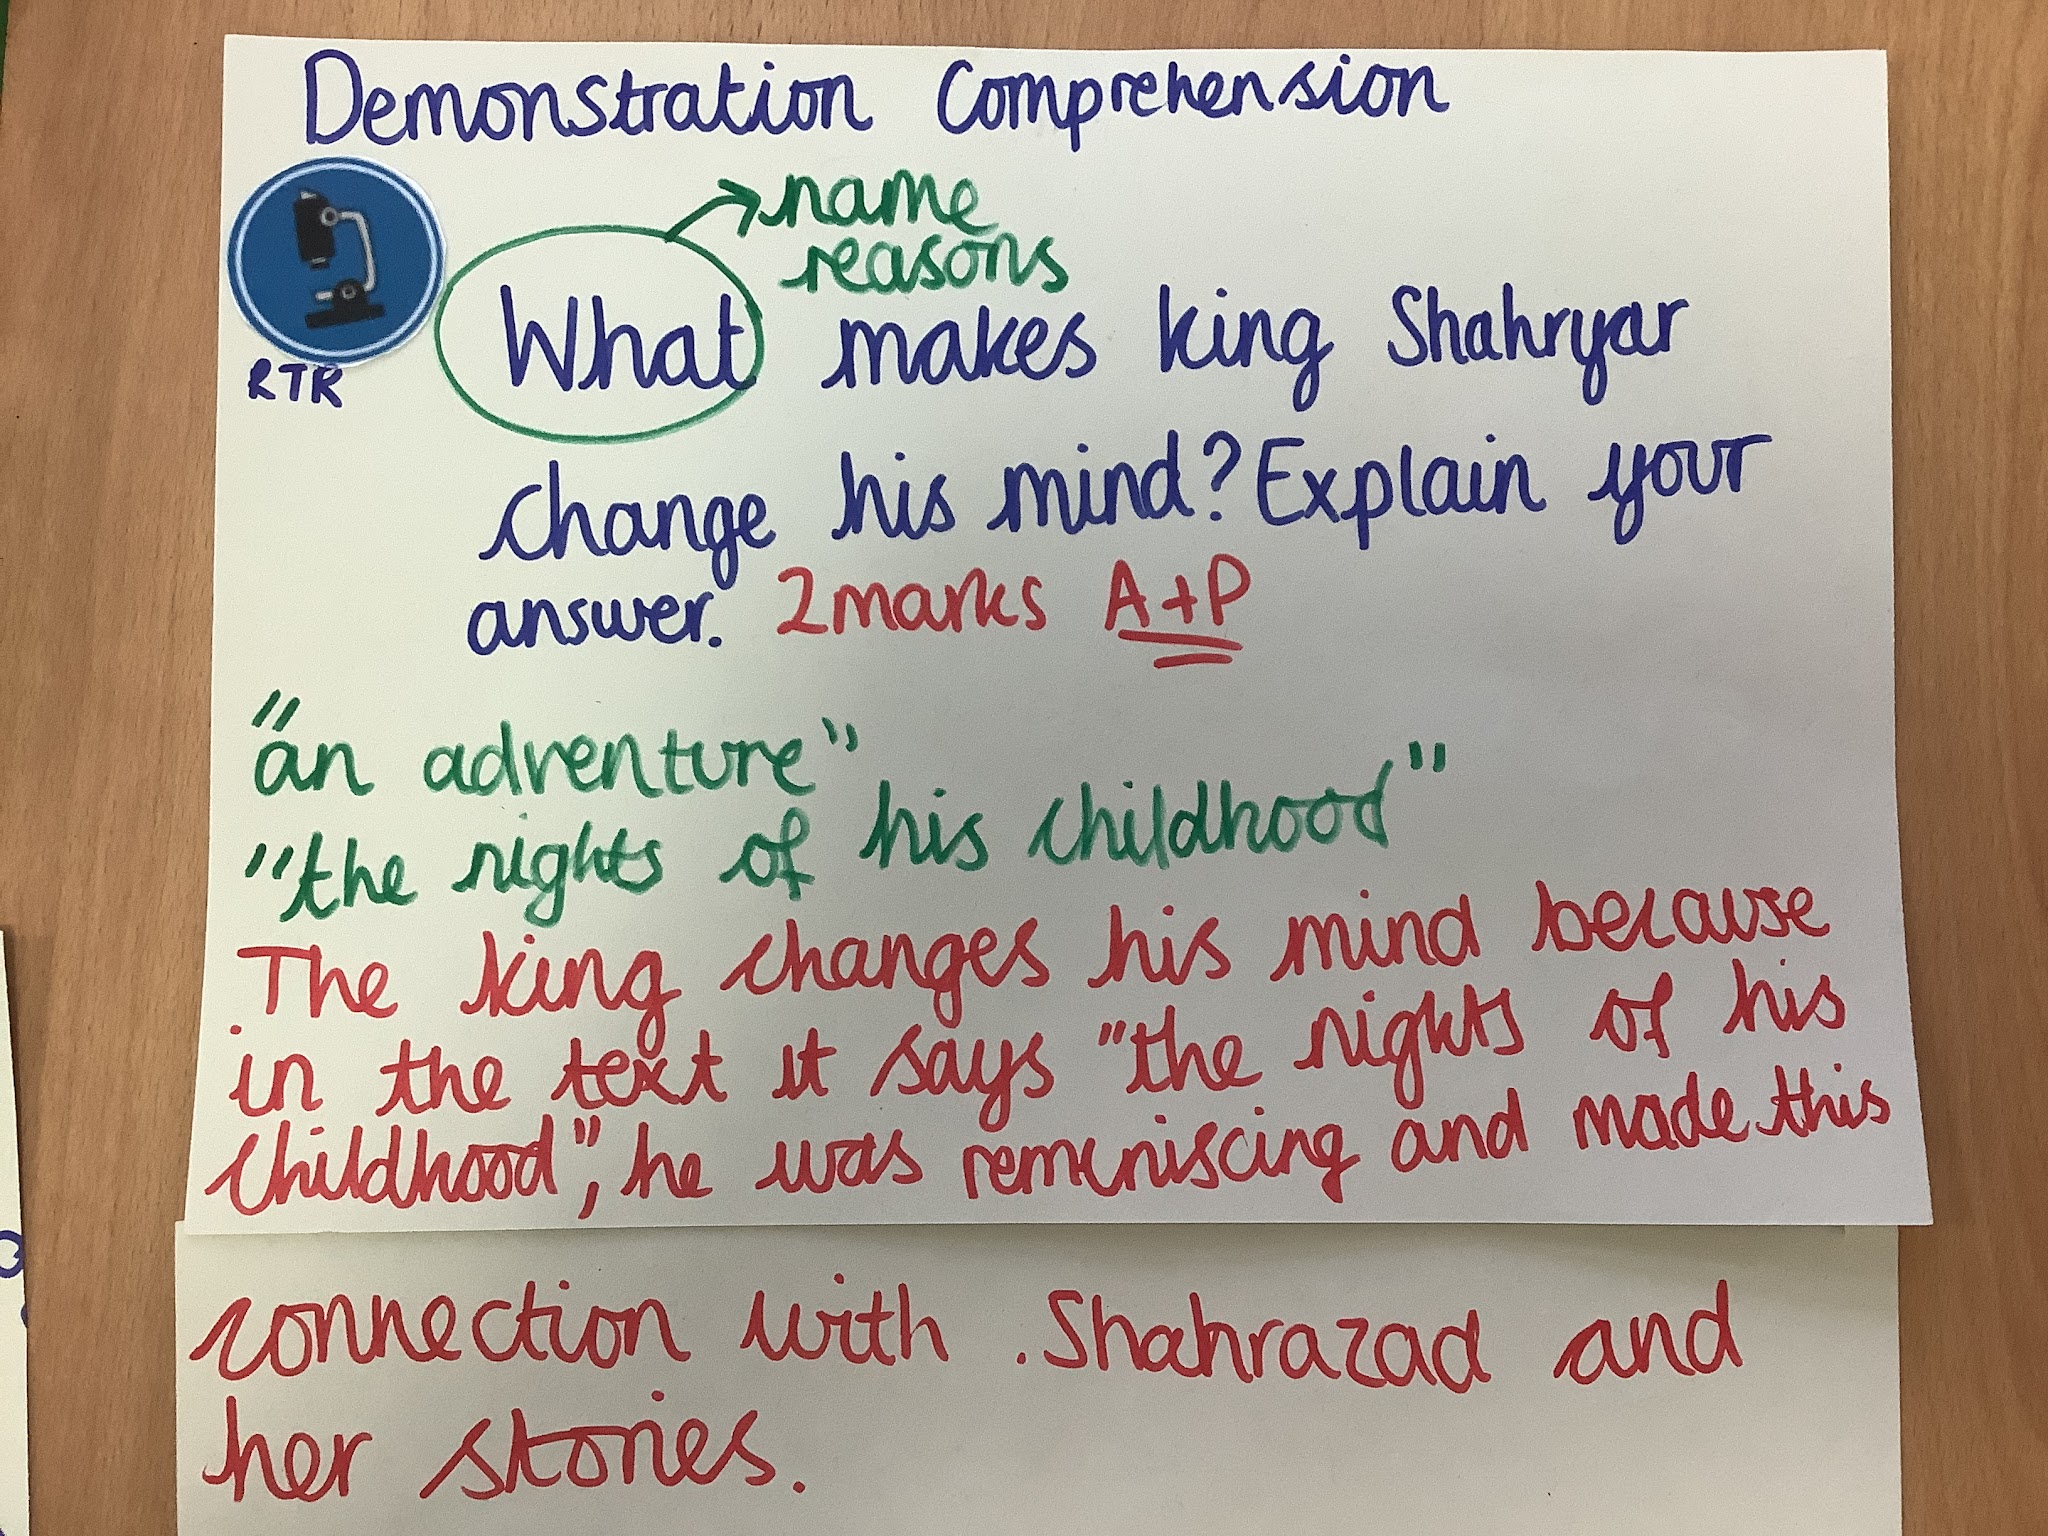 Demonstration Comprehension
name
reasons
RTR
What makes king Shahryar
change his mind? Explain your
answer. 2 marks A+P
"an adventure"
"the nights of his childhood"
The king changes his mind because
in the text it says "the nights of his
childhood", he was reminiscing and made this
connection with . Shahrazad and
her stories.